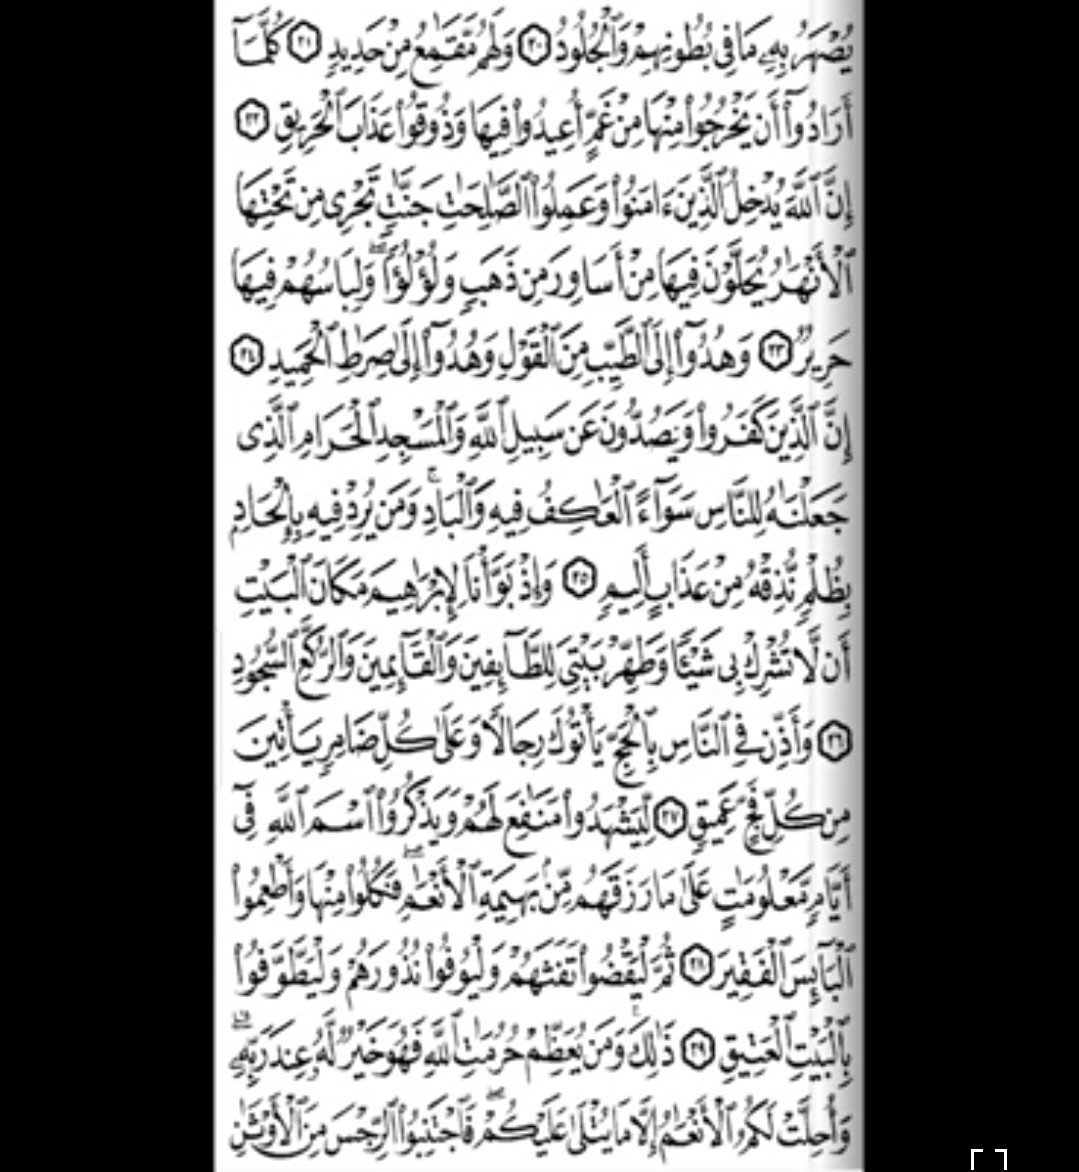 يُصْهَرُ بِهِۦ مَا فِى بُطُونِهِمْ وَٱلْجُلُودُ ٢٠ وَلَهُم مَّقَٰمِعُ مِنْ حَدِيدٍ ٢١ كُلَّمَآ
أَرَادُوٓا۟ أَن يَخْرُجُوا۟ مِنْهَا مِنْ غَمٍّ أُعِيدُوا۟ فِيهَا وَذُوقُوا۟ عَذَابَ ٱلْحَرِيقِ ٢٢
إِنَّ ٱللَّهَ يُدْخِلُ ٱلَّذِينَ ءَامَنُوا۟ وَعَمِلُوا۟ ٱلصَّٰلِحَٰتِ جَنَّٰتٍ تَجْرِى مِن تَحْتِهَا
ٱلْأَنْهَٰرُ يُحَلَّوْنَ فِيهَا مِنْ أَسَاوِرَ مِن ذَهَبٍ وَلُؤْلُؤًا ۖ وَلِبَاسُهُمْ فِيهَا
حَرِيرٌ ٢٣ وَهُدُوٓا۟ إِلَى ٱلطَّيِّبِ مِنَ ٱلْقَوْلِ وَهُدُوٓا۟ إِلَىٰ صِرَٰطِ ٱلْحَمِيدِ ٢٤
إِنَّ ٱلَّذِينَ كَفَرُوا۟ وَيَصُدُّونَ عَن سَبِيلِ ٱللَّهِ وَٱلْمَسْجِدِ ٱلْحَرَامِ ٱلَّذِى
جَعَلْنَٰهُ لِلنَّاسِ سَوَآءً ٱلْعَٰكِفُ فِيهِ وَٱلْبَادِ ۚ وَمَن يُرِدْ فِيهِ بِإِلْحَادٍۭ
بِظُلْمٍ نُّذِقْهُ مِنْ عَذَابٍ أَلِيمٍ ٢٥ وَإِذْ بَوَّأْنَا لِإِبْرَٰهِيمَ مَكَانَ ٱلْبَيْتِ
أَن لَّا تُشْرِكْ بِى شَيْـًٔا وَطَهِّرْ بَيْتِىَ لِلطَّآئِفِينَ وَٱلْقَآئِمِينَ وَٱلرُّكَّعِ ٱلسُّجُودِ
٢٦ وَأَذِّن فِى ٱلنَّاسِ بِٱلْحَجِّ يَأْتُوكَ رِجَالًا وَعَلَىٰ كُلِّ ضَامِرٍ يَأْتِينَ
مِن كُلِّ فَجٍّ عَمِيقٍ ٢٧ لِّيَشْهَدُوا۟ مَنَٰفِعَ لَهُمْ وَيَذْكُرُوا۟ ٱسْمَ ٱللَّهِ فِىٓ
أَيَّامٍ مَّعْلُومَٰتٍ عَلَىٰ مَا رَزَقَهُم مِّنۢ بَهِيمَةِ ٱلْأَنْعَٰمِ ۖ فَكُلُوا۟ مِنْهَا وَأَطْعِمُوا۟
ٱلْبَآئِسَ ٱلْفَقِيرَ ٢٨ ثُمَّ لْيَقْضُوا۟ تَفَثَهُمْ وَلْيُوفُوا۟ نُذُورَهُمْ وَلْيَطَّوَّفُوا۟
بِٱلْبَيْتِ ٱلْعَتِيقِ ٢٩ ذَٰلِكَ ۚ وَمَن يُعَظِّمْ حُرُمَٰتِ ٱللَّهِ فَهُوَ خَيْرٌ لَّهُۥ عِندَ رَبِّهِۦ ۗ
وَأُحِلَّتْ لَكُمُ ٱلْأَنْعَٰمُ إِلَّا مَا يُتْلَىٰ عَلَيْكُمْ ۖ فَٱجْتَنِبُوا۟ ٱلرِّجْسَ مِنَ ٱلْأَوْثَٰنِ